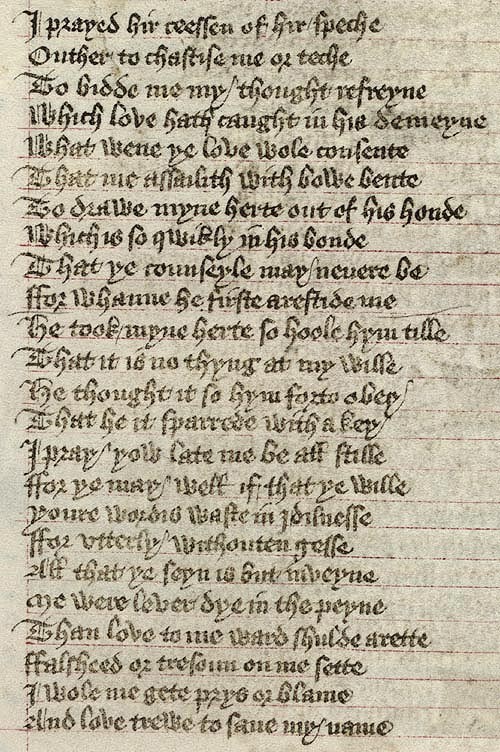 I prayed hir ceessen of hir speche
Outher to chastise me or teche
To bidde me my thought refreyne
Which love hath caught in his demeyne
What wene ye love wole consente
That me assailith with bowe bente
To drawe myne herte out of his honde
Which is so qwikly in his bonde
That ye counseyle may nevere be
ffor whanne he firste arestide me
He took myne herte so hoole hym tille
That it is no thyng at my wille
He thought it so hym forto obey
That he it sparrede with a key
I pray yow late me be all stille
ffor ye may well if that ye wille
youre wordis waste in ydilnesse
ffor vtterly withouten gesse
All that ye seyn is but in veyne
Me were lever dye in the peyne
Than love to me ward shulde arette
ffalsheed or tresoun on me sette
I wole me gete prys or blame
And love trewe to saue my name